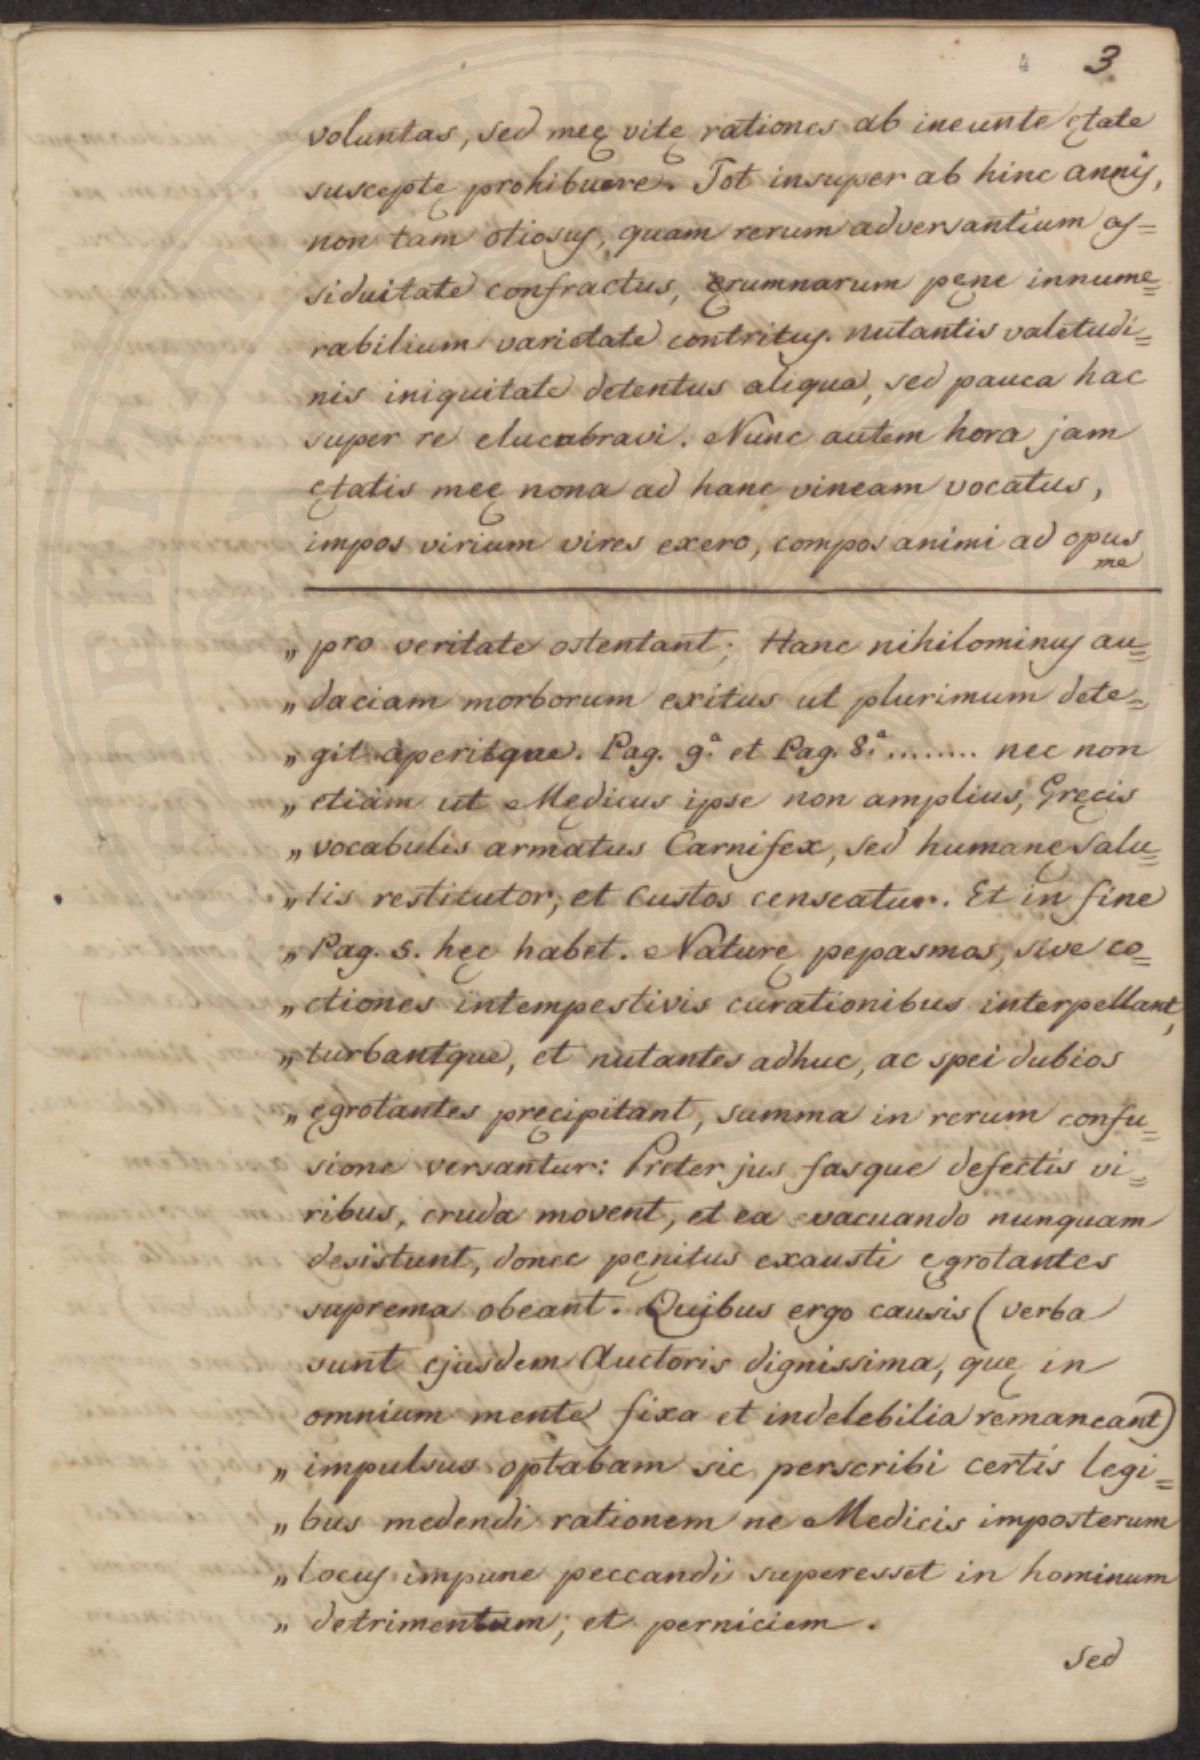 4 3
voluntas, sed meę vitę rationes ab ineunte ętate
susceptę prohibuere. Tot insuper ab hinc annis,
non tam otiosus, quam rerum adversantium as=
siduitate confractus, ęrumnarum pęne innume=
rabilium varietate contritus. nutantis valetudi=
nis iniquitate detentus aliqua, sed pauca hac
super re elucubravi. Nunc autem hora jam
ętatis meę nona ad hanc vineam vocatus,
impos virium vires exero, compos animi ad opus
me
„ pro veritate ostentant; Hanc nihilominus au=
„ daciam morborum exitus ut plurimum dete=
„ git aperitque. Pag. 9.ª et Pag. 8.ª ........ nec non
„ etiam ut Medicus ipse non amplius, Gręcis
„ vocabulis armatus Carnifex, sed humanę salu=
„ tis restitutor, et Custos censeatur. Et in fine
„ Pag. 5. hęc habet. Naturę pepasmos, sive co=
„ ctiones intempestivis curationibus interpellant,
„ turbantque, et nutantes adhuc, ac spei dubios
„ ęgrotantes pręcipitant, summa in rerum confu=
sione versantur: Preter jus fasque defectis vi=
ribus, cruda movent, et ea evacuando nunquam
desistunt, donec pęnitus exausti ęgrotantes
suprema obeant. Quibus ergo causis (verba
sunt ejusdem Auctoris dignissima, quę in
omnium mente fixa et indelebilia remaneant)
„ impulsus optabam sic perscribi certis legi=
„ bus medendi rationem ne Medicis imposterum
„ locus impune peccandi superesset in hominum
„ detrimentum, et perniciem.
Sed